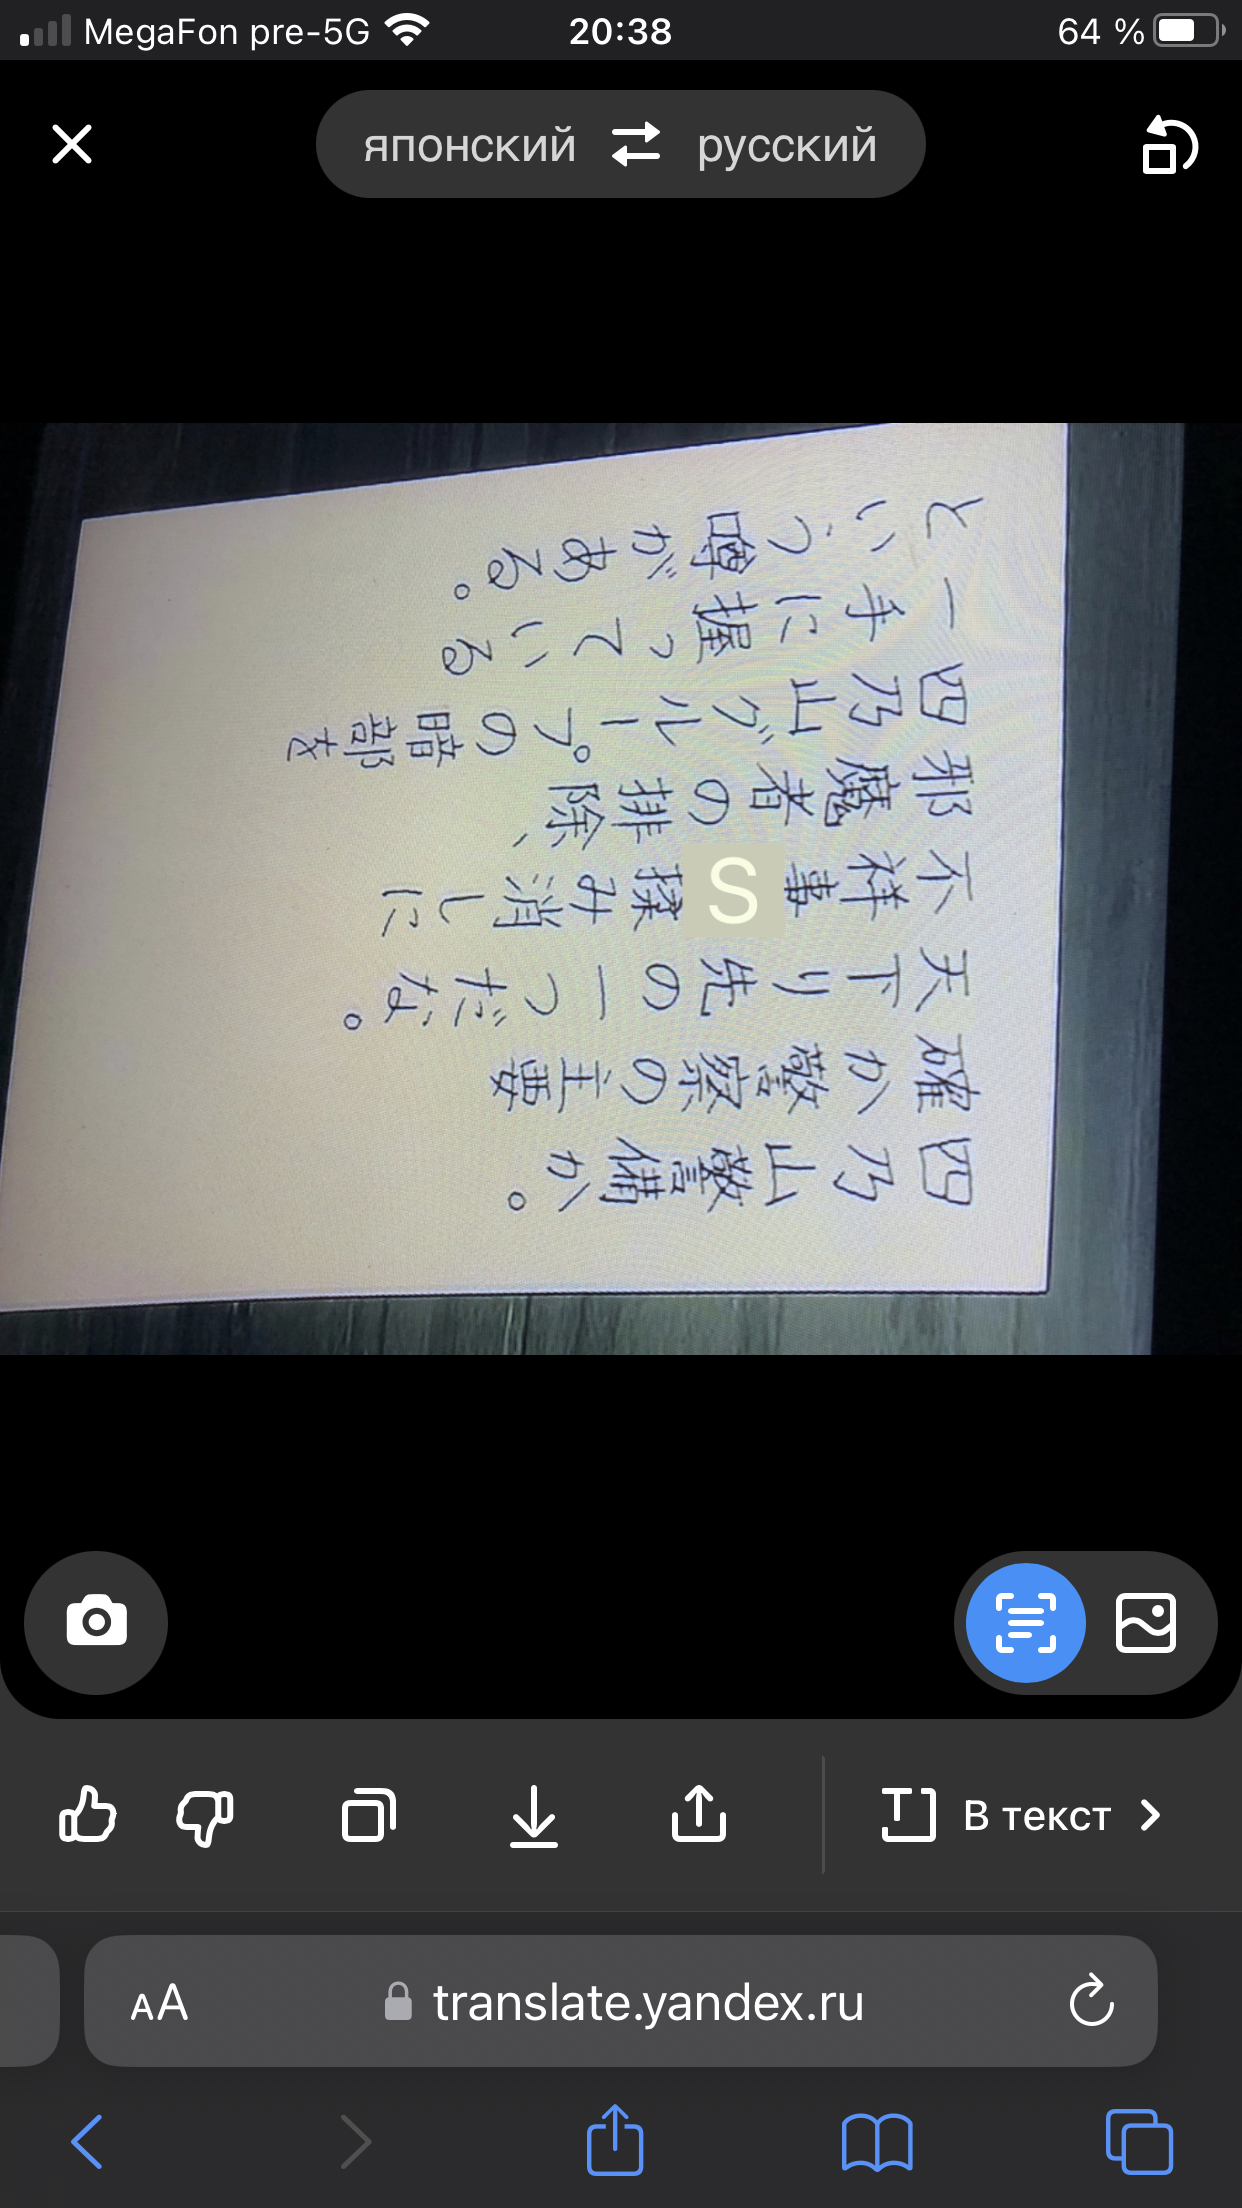 MegaFon pre-5G 20:38 64 %
японский русский
四乃山警備か。
確か警察の主要
天下り先の一つだな。
不祥事S揉み消しに
邪魔者の排除、
四乃山グループの暗部を
一手に握っている
という噂がある。
В текст
AA translate.yandex.ru